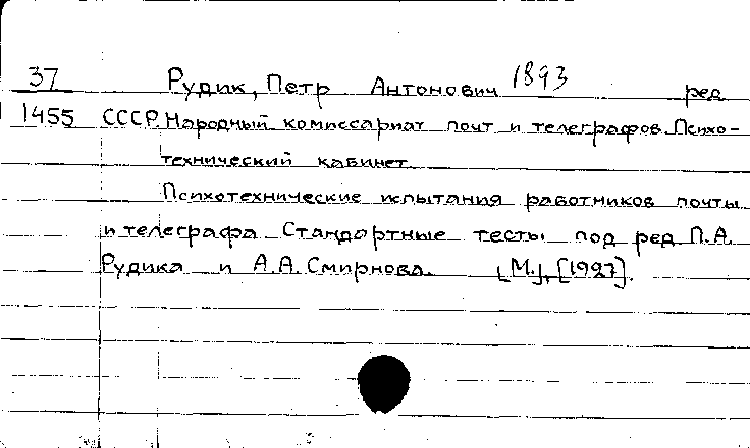 37 Рудик, Петр Антонович 1893 ред
1455 СССР. Народный комиссариат почт и телеграфов. Психо-
технический кабинет
Психотехнические испытания работников почты
и телеграфа. Стандартные тесты под ред П.А.
Рудика и А.А. Смирнова. [М.], [1927].